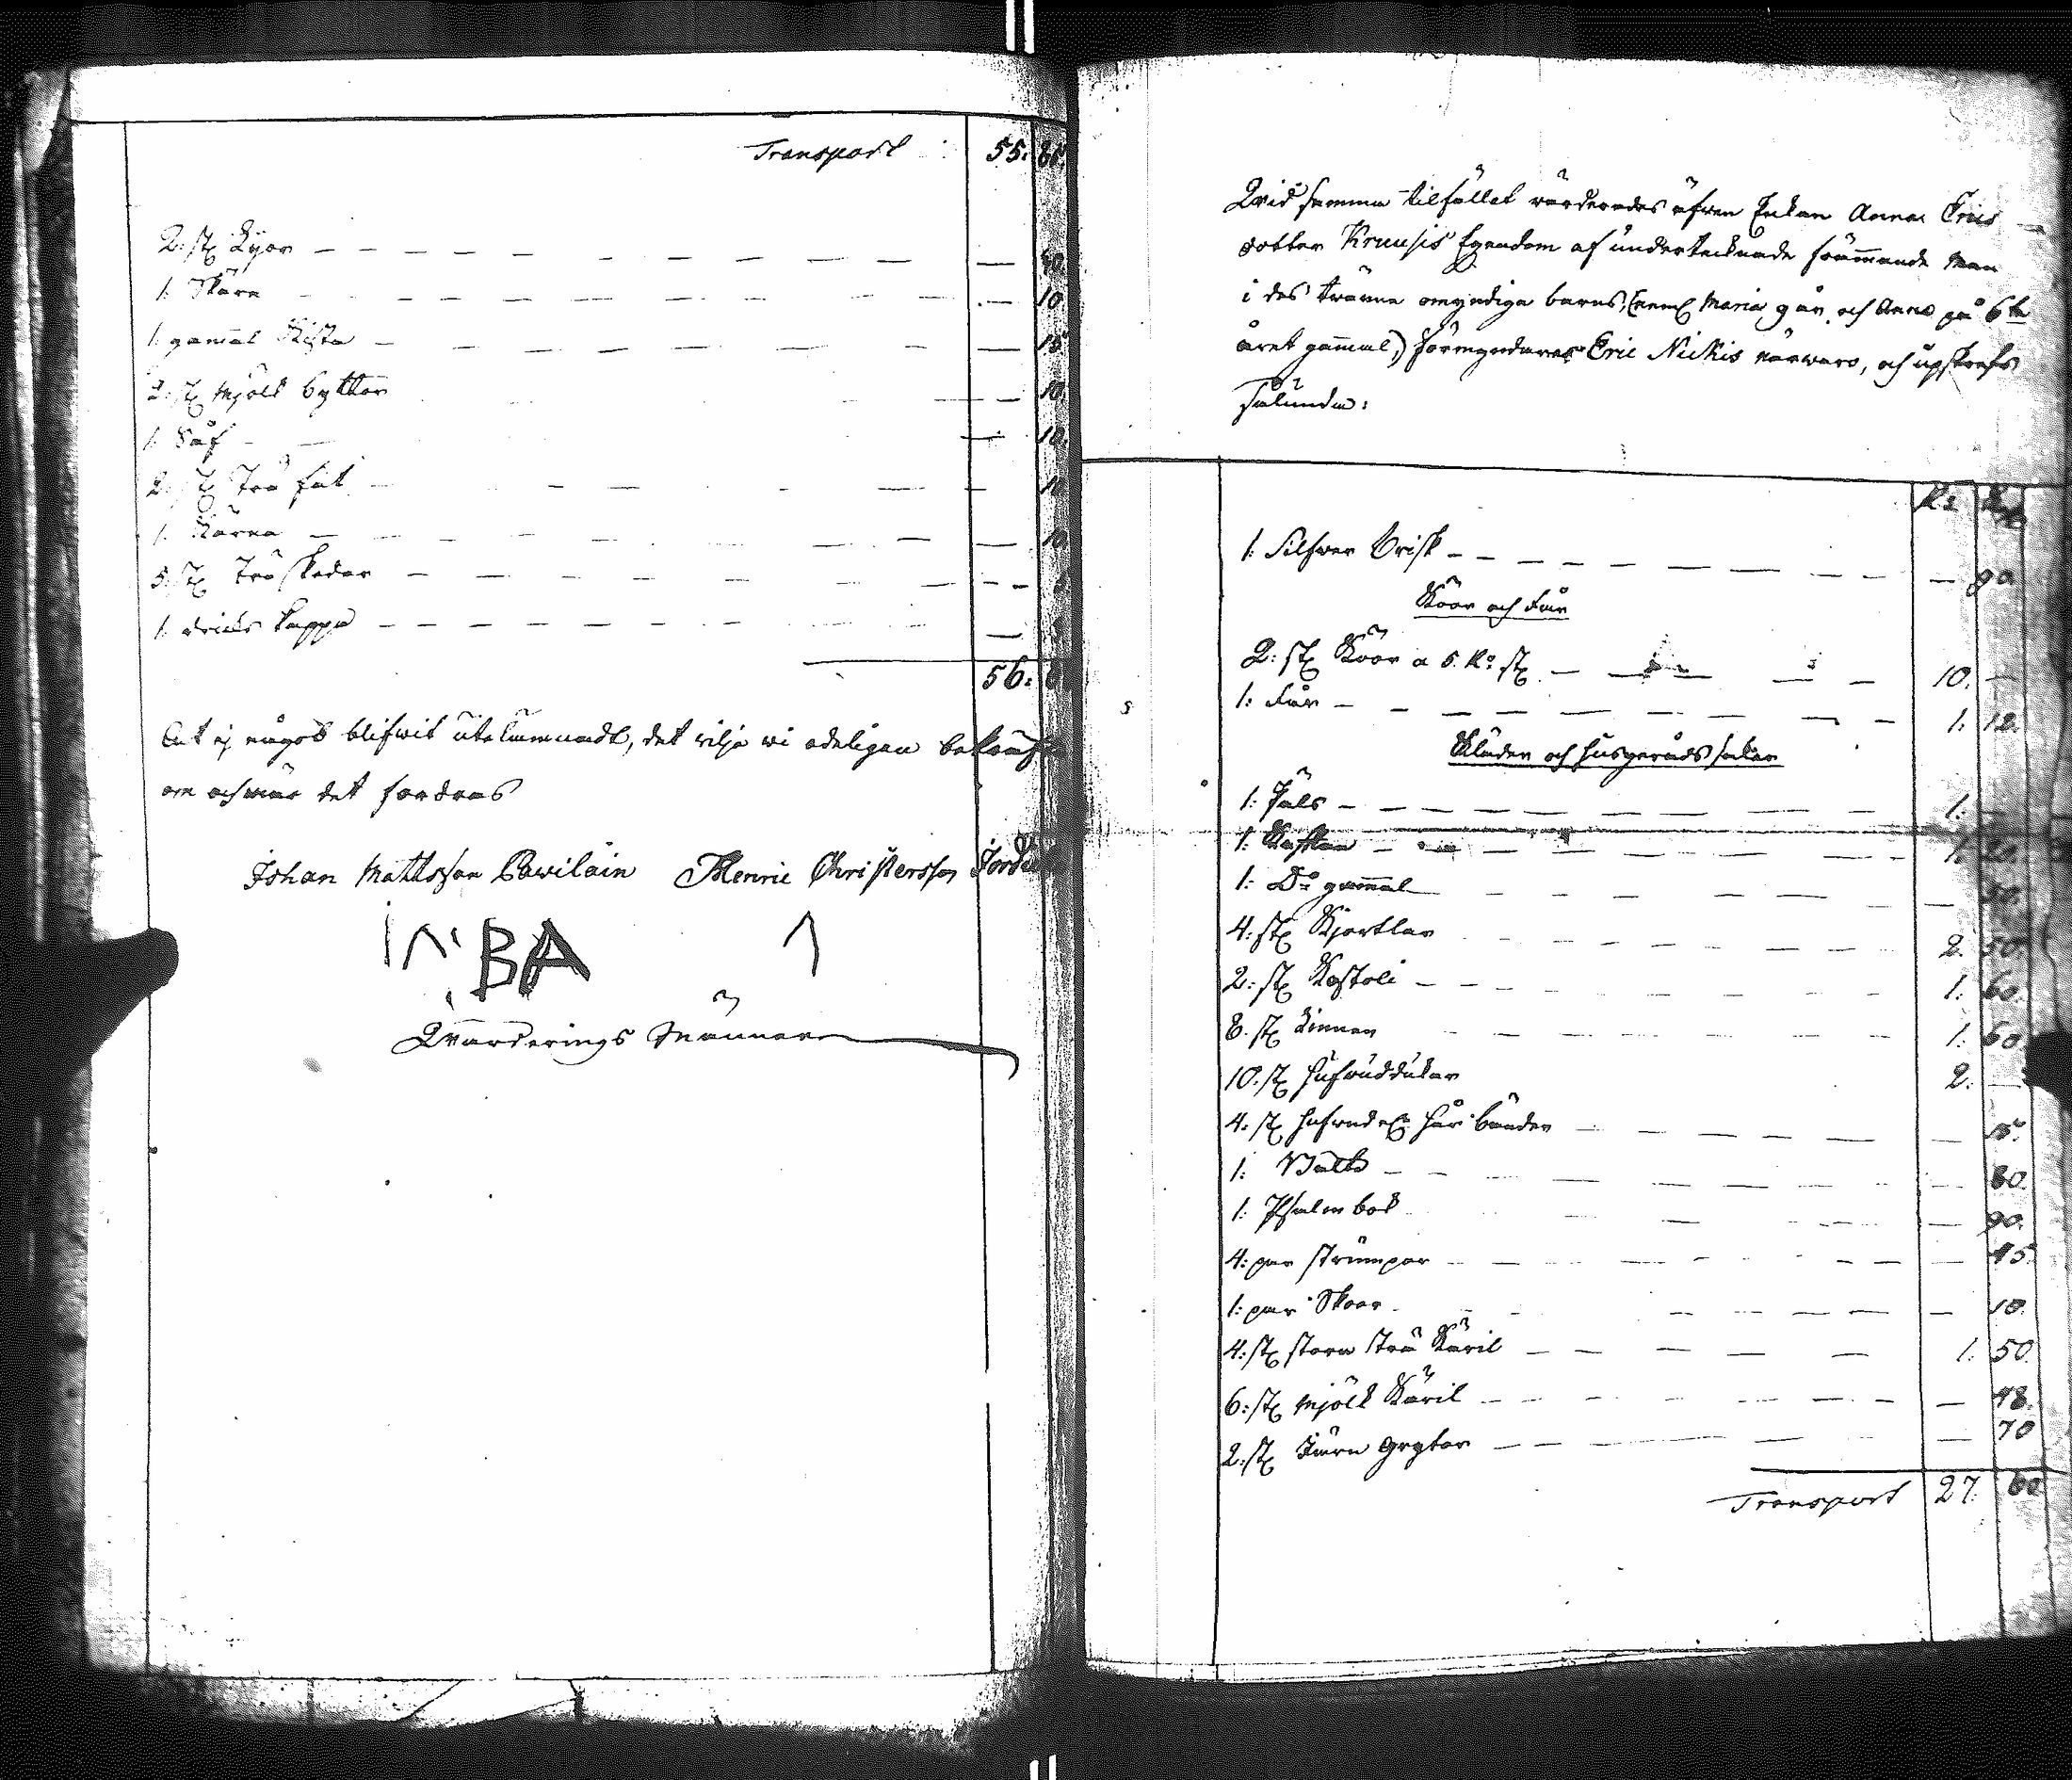 Transport 55.
2: st Lijor — 
1. Skära — 10
1. gamal Kista — 15
2. st Mjölk byttor — 10.
1. Såf — 10.
2. st Trä fat — 
1. Kärna — 10
5. st Träskedar — 
1. dricks kappa — 
56.
At ej något blifwit utelämnadt, det vilja wi edeligen bekräfta
om och när det fordras
Johan Mattsson Pawilain Henric Christersson
BA
Qvärderings Männer
Qvid samma tilfället värderades äfwen Enkan Anna Erics
dotter Kruusis Egendom af undertecknade främmande Män
i des tvänne omyndiga barns, (neml Maria 9 år, och Anna på 6te
året gammal,) förmyndares Eric Nickis närwaro, och upskrefs
sålunda:
1: Silfwer Brisk — 90
Koor och Får
2: st Koor a 5. Ro st — 10. —
1: Får — 1. 12.
Kläder och husgeråds saker
1: Päls — 1. —
1: Kaftan — 1.
1: Do gammal — 50.
4: st Kjortlar 2. 50.
2: st Kastoli — 1. 60.
8. st Linnen 1. 60.
10. st hufwuddukar 2. —
4: st hufwud hår bänder — 15.
1: Bälte — 80.
1: Psalm bok — 90.
4: par strumpor — 45.
1: par Skoor — 10.
4: st stora trä Käril — 1. 50.
6: st Mjölk Käril — 48.
2: st Järn Grytor — 70
Transport 27. 60